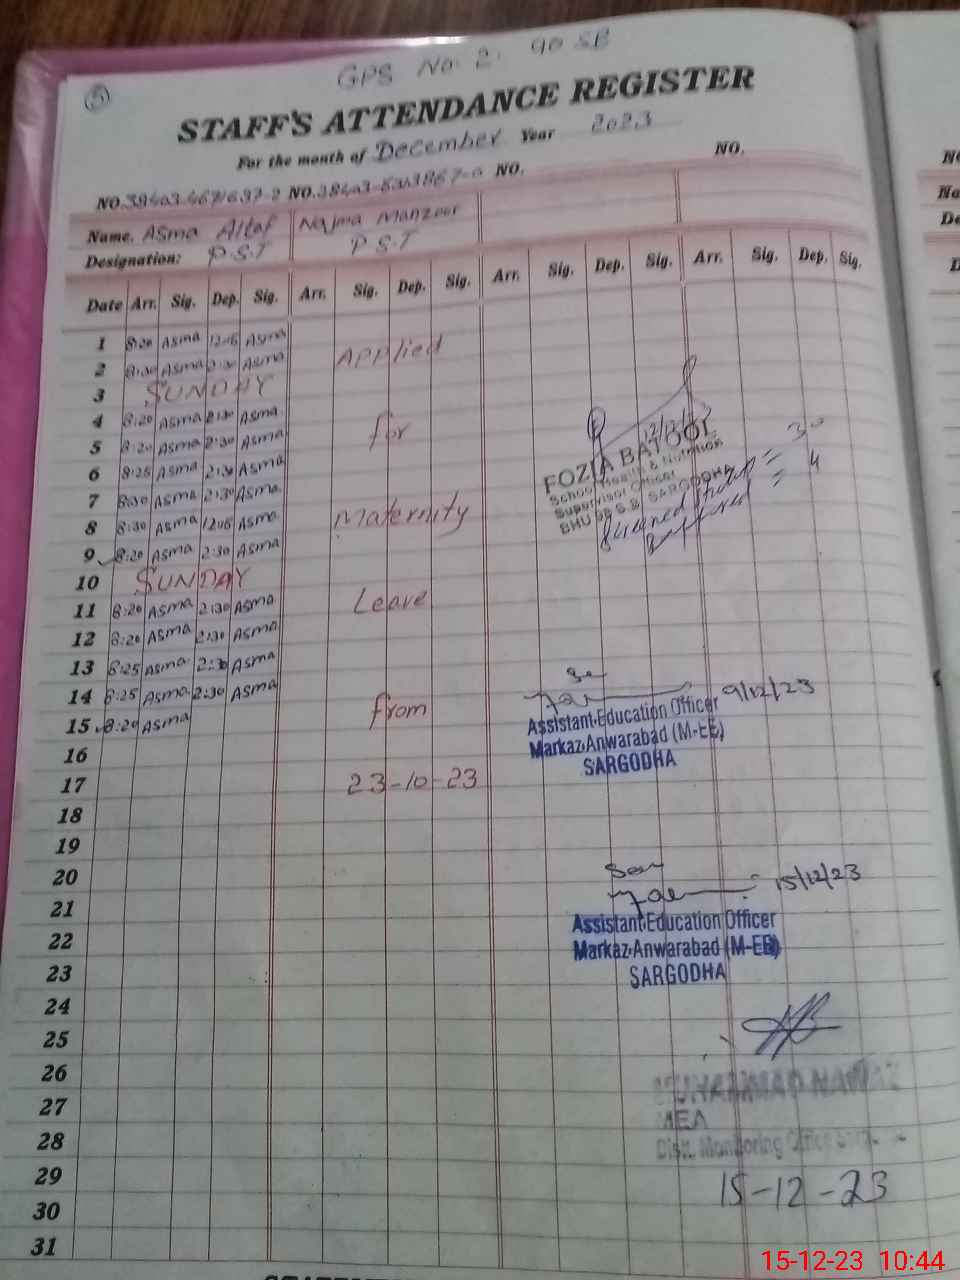 5
GPS No. 2. 90 SB
STAFF'S ATTENDANCE REGISTER
For the month of December Year 2023
NO. NO. NO. NO.
Name. Asma Altaf Najma Manzoor
Designation: P.S.T P.S.T
Date Arr. Sig. Dep. Sig. Arr. Sig. Dep. Sig. Arr. Sig. Dep. Sig. Arr. Sig. Dep. Sig.
1 8:20 Asma 12:05 Asma
2 8:20 Asma 2:30 Asma Applied
3 SUNDAY
4 8:20 Asma 2:30 Asma for
5 8:20 Asma 2:30 Asma
6 8:25 Asma 2:30 Asma
7 8:30 Asma 2:30 Asma
8 8:30 Asma 12:05 Asma Maternity
9 8:20 Asma 2:30 Asma
10 SUNDAY
11 8:20 Asma 2:30 Asma Leave
12 8:20 Asma 2:30 Asma
13 8:25 Asma 2:30 Asma
14 8:25 Asma 2:30 Asma from
15 8:20 Asma
16
17 23-10-23
18
19
20
21
22
23
24
25
26
27
28
29
30
31
FOZIA BATOOL
School Health & Nutrition
Supervisor Officer
S.B SARGODHA
= 30
= 4
9/12/23
Assistant Education Officer
Markaz Anwarabad (M-EE)
SARGODHA
15/12/23
Assistant Education Officer
Markaz Anwarabad (M-EE)
SARGODHA
MUHAMMAD NAWAZ
MEA
Distt. Monitoring Officer
15-12-23
15-12-23 10:44